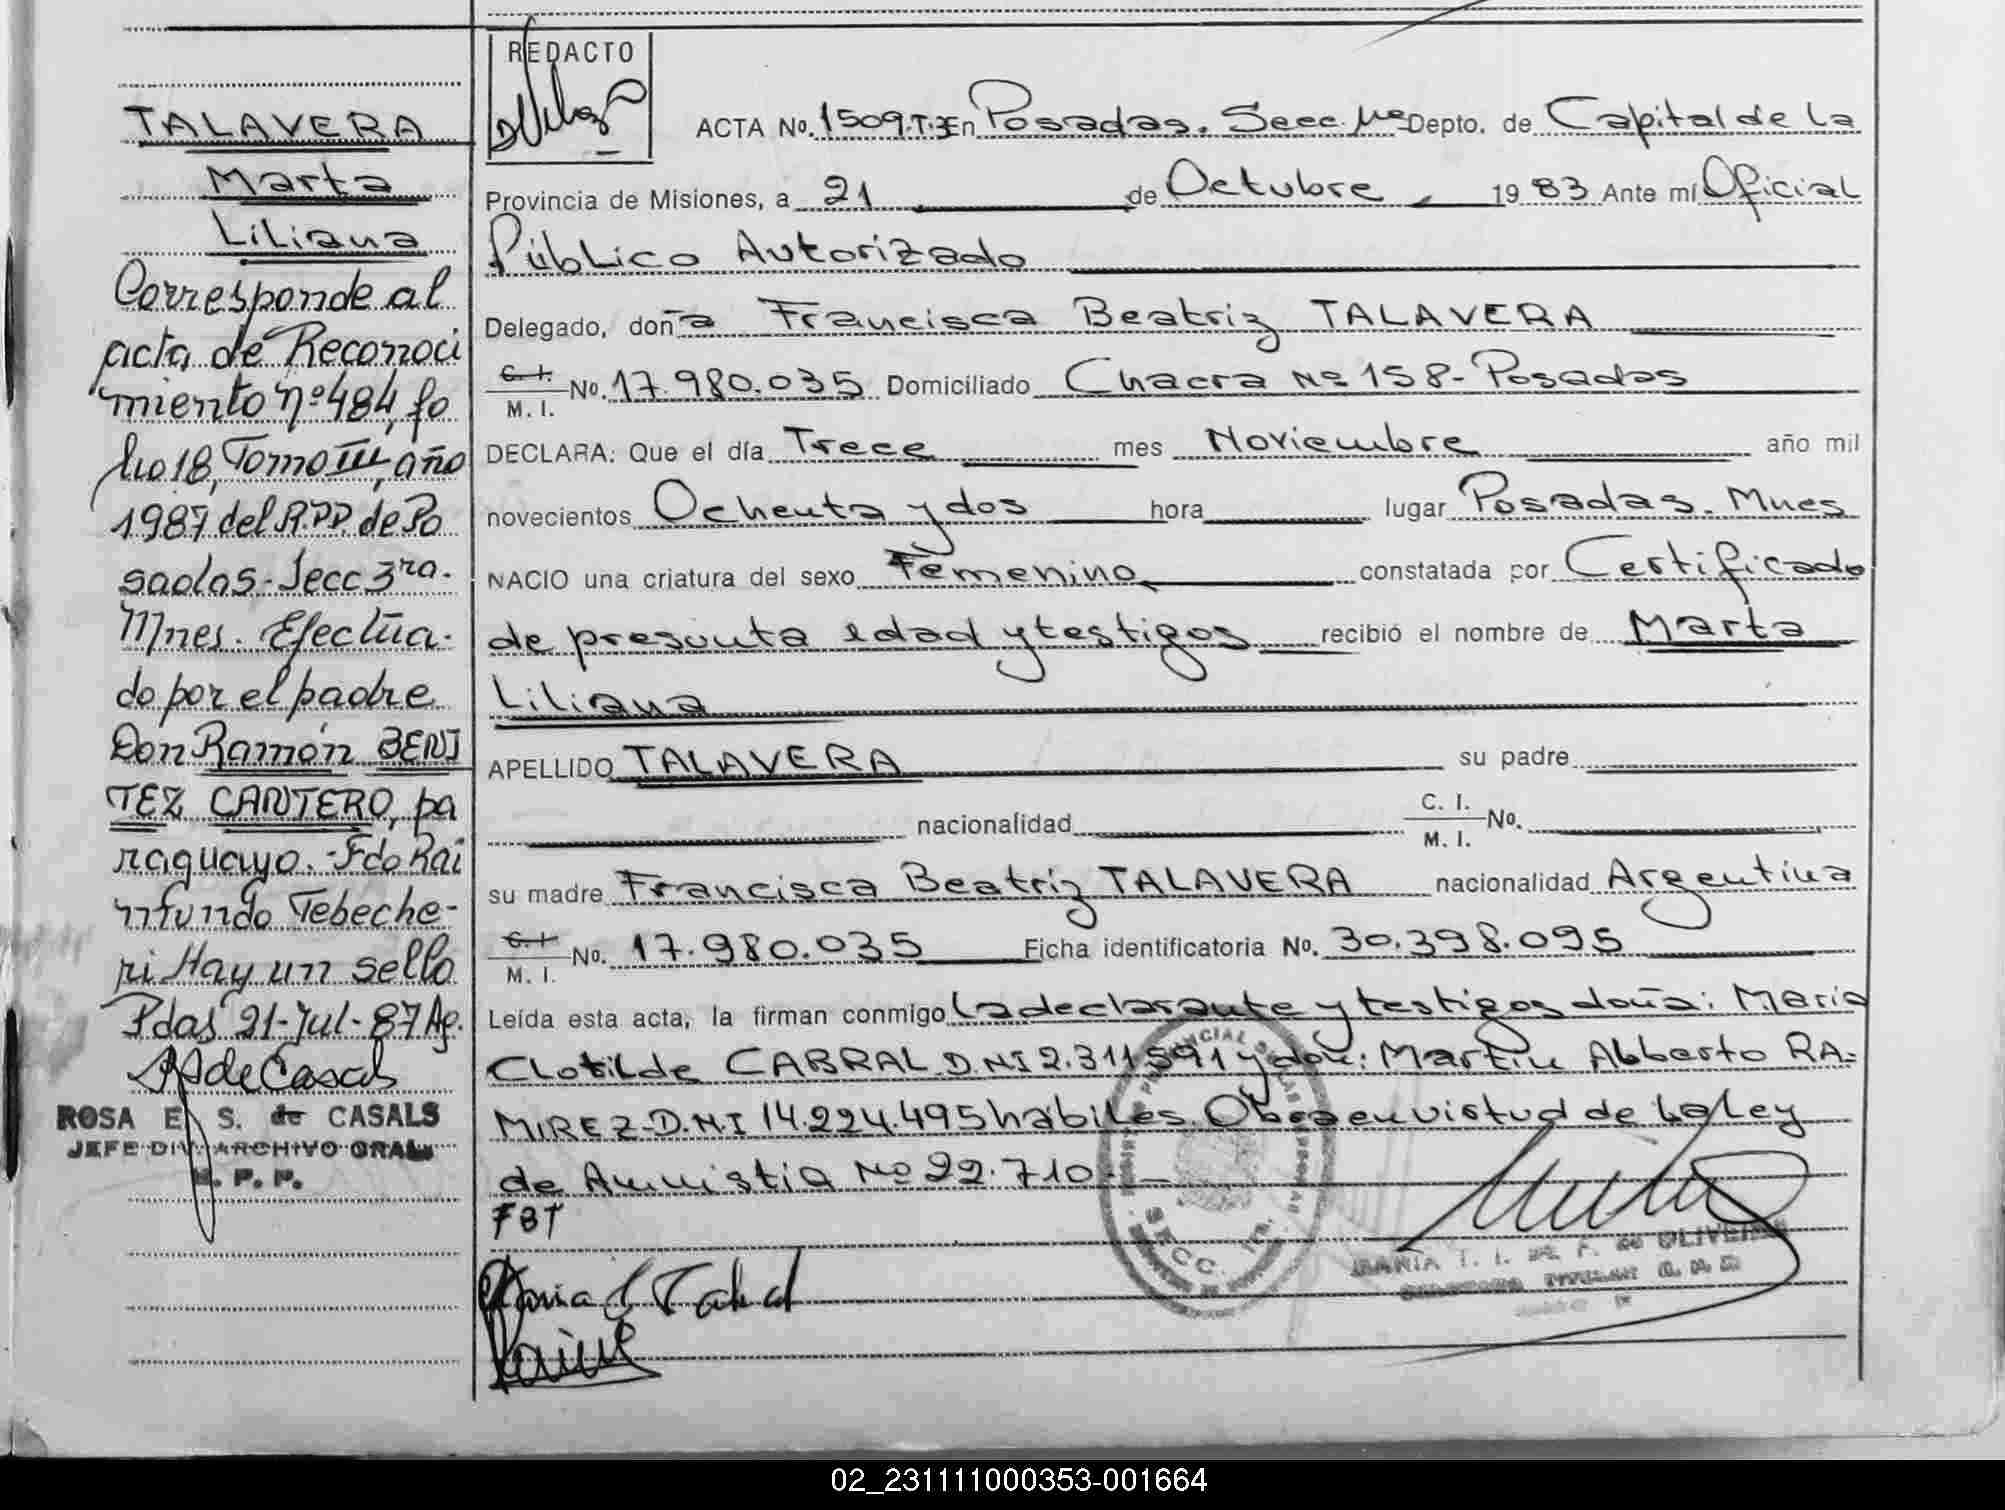 TALAVERA
Marta
Liliana
Corresponde al
acta de Reconoci
miento nº 484, fo
lio 18, Tomo III, año
1987 del R.P.P. de Po
sadas - Secc 3ra.
Mnes. Efectua-
do por el padre
Don Ramón BENI
TEZ CANTERO, pa
raguayo. - Fdo Rai
mundo Tebeche-
ri Hay un sello
Pdas 21-Jul-87 Ag.
ROSA E. S. de CASALS
JEFE DIV. ARCHIVO GRAL.
R. P. P.
REDACTO
ACTA No. 1509.T.3 En Posadas. Secc. 1ra Depto. de Capital de La
Provincia de Misiones, a 21 de Octubre 1983 Ante mí Oficial
Público Autorizado
Delegado, doña Francisca Beatriz TALAVERA
C. I. M. I. No. 17.980.035 Domiciliado Chacra Nº 158 - Posadas
DECLARA: Que el día Trece mes Noviembre año mil
novecientos Ochenta y dos hora lugar Posadas. Mnes
NACIO una criatura del sexo Femenino constatada por Certificado
de presunta edad y testigos recibió el nombre de Marta
Liliana
APELLIDO TALAVERA su padre
nacionalidad C. I. M. I. No.
su madre Francisca Beatriz TALAVERA nacionalidad Argentina
C. I. M. I. No. 17.980.035 Ficha identificatoria No. 30.398.095
Leída esta acta, la firman conmigo La declarante y testigos doña: Maria
Clotilde CABRAL D.NI 2.311.591 y don: Martin Alberto RA-
MIREZ - D.N.I 14.224.495 habiles. Obra en virtud de La Ley
de Amnistia Nº 22.710.-
FBT
SECC. 1ra.
MARIA T. I. DE F. de OLIVEIRA
02_231111000353-001664